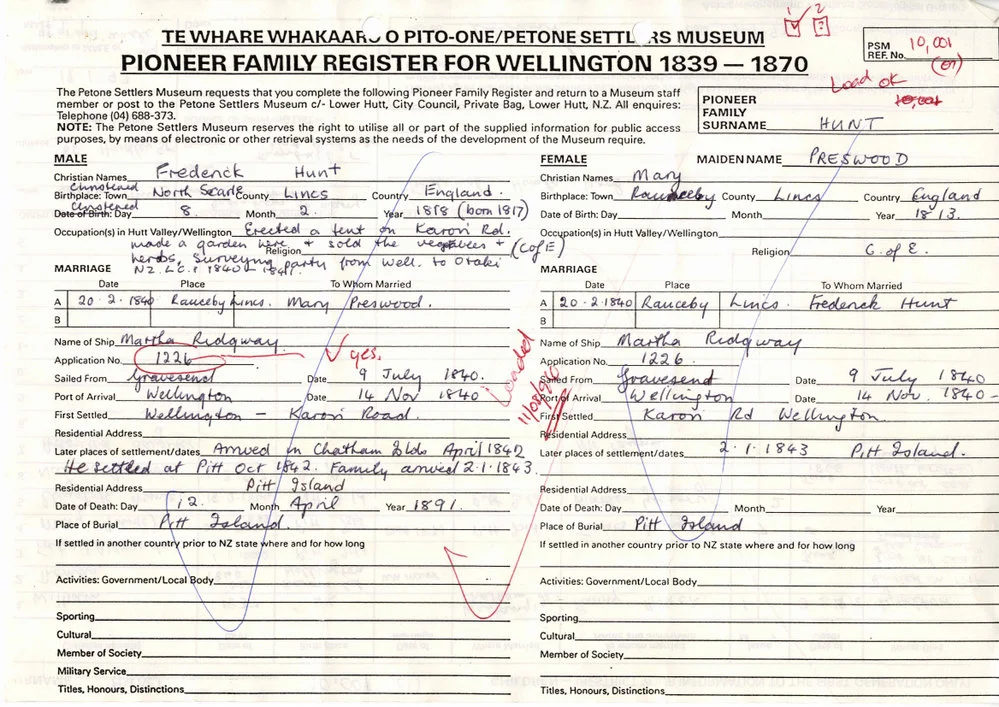 TE WHARE WHAKAARO O PITO-ONE/PETONE SETTLERS MUSEUM
PIONEER FAMILY REGISTER FOR WELLINGTON 1839 — 1870
1 2
PSM
REF. No. 10,001
Load OK
10,001
The Petone Settlers Museum requests that you complete the following Pioneer Family Register and return to a Museum staff
member or post to the Petone Settlers Museum c/- Lower Hutt, City Council, Private Bag, Lower Hutt, N.Z. All enquires:
Telephone (04) 688-373.
NOTE: The Petone Settlers Museum reserves the right to utilise all or part of the supplied information for public access
purposes, by means of electronic or other retrieval systems as the needs of the development of the Museum require.
PIONEER
FAMILY
SURNAME HUNT
MALE
Christian Names Frederick Hunt
Christened
Birthplace: Town North Scarle County Lincs Country England.
Christened
Date of Birth: Day 8. Month 2. Year 1818 (born 1817)
Occupation(s) in Hutt Valley/Wellington Erected a tent on Karori Rd.
made a garden here + sold the vegetables +
Religion (C of E)
herbs, Surveying party from Well. to Otaki
N.Z.L.C. 1840 - 1841.
MARRIAGE
Date Place To Whom Married
A 20.2.1840 Rauceby Lincs. Mary Preswood.
B
Name of Ship Martha Ridgway.
Application No. 1226 yes.
Sailed From Gravesend Date 9 July 1840.
Port of Arrival Wellington Date 14 Nov 1840
First Settled Wellington - Karori Road.
Residential Address
Later places of settlement/dates Arrived in Chatham Islds April 1842
He settled at Pitt Oct 1842. Family arrived 2.1.1843.
Residential Address Pitt Island
Date of Death: Day 12. Month April Year 1891.
Place of Burial Pitt Island.
If settled in another country prior to NZ state where and for how long
Activities: Government/Local Body
Sporting
Cultural
Member of Society
Military Service
Titles, Honours, Distinctions
Loaded
FEMALE MAIDEN NAME PRESWOOD
Christian Names Mary
Birthplace: Town Rauceby County Lincs Country England
Date of Birth: Day Month Year 1813.
Occupation(s) in Hutt Valley/Wellington
Religion C. of E.
MARRIAGE
Date Place To Whom Married
A 20.2.1840 Rauceby Lincs. Frederick Hunt
B
Name of Ship Martha Ridgway
Application No. 1226.
Sailed From Gravesend Date 9 July 1840
Port of Arrival Wellington Date 14 Nov. 1840-
First Settled Karori Rd Wellington.
Residential Address
Later places of settlement/dates 2.1.1843 Pitt Island.
Residential Address
Date of Death: Day Month Year
Place of Burial Pitt Island
If settled in another country prior to NZ state where and for how long
Activities: Government/Local Body
Sporting
Cultural
Member of Society
Titles, Honours, Distinctions